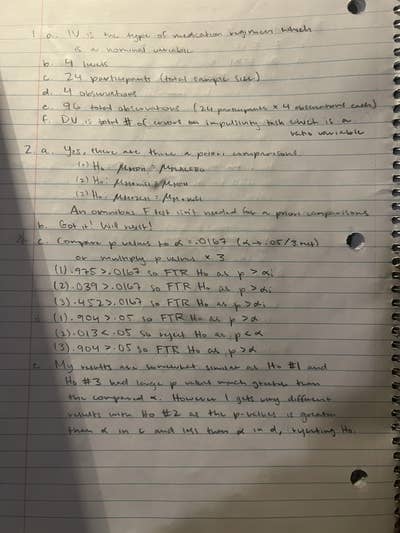 1. a. IV is the type of medication regimen which
is a nominal variable
b. 4 levels
c. 24 participants (total sample size)
d. 4 observations
e. 96 total observations (24 participants x 4 observations each)
f. DV is total # of errors on impulsivity task which is a
ratio variable
2. a. Yes, there are three a priori comparisons
(1) H₀: μ = μPLACEBO
(2) H₀: μ = μ
(3) H₀: μ = μ
An omnibus F test isn't needed for a priori comparisons
b. Got it! Will reset!
c. Compare p values to α = .0167 (α → .05/3 )
or multiply p values x 3
(1) .975 > .0167 so FTR H₀ as p > α
(2) .039 > .0167 so FTR H₀ as p > α
(3) .452 > .0167 so FTR H₀ as p > α
(1) .904 > .05 so FTR H₀ as p > α
(2) .013 < .05 so reject H₀ as p < α
(3) .904 > .05 so FTR H₀ as p > α
e. My results are somewhat similar as H₀ #1 and
H₀ #3 had large p values much greater than
the compared α. However I get very different
results with H₀ #2 as the p-values is greater
than α in c and less than α in d, rejecting H₀.